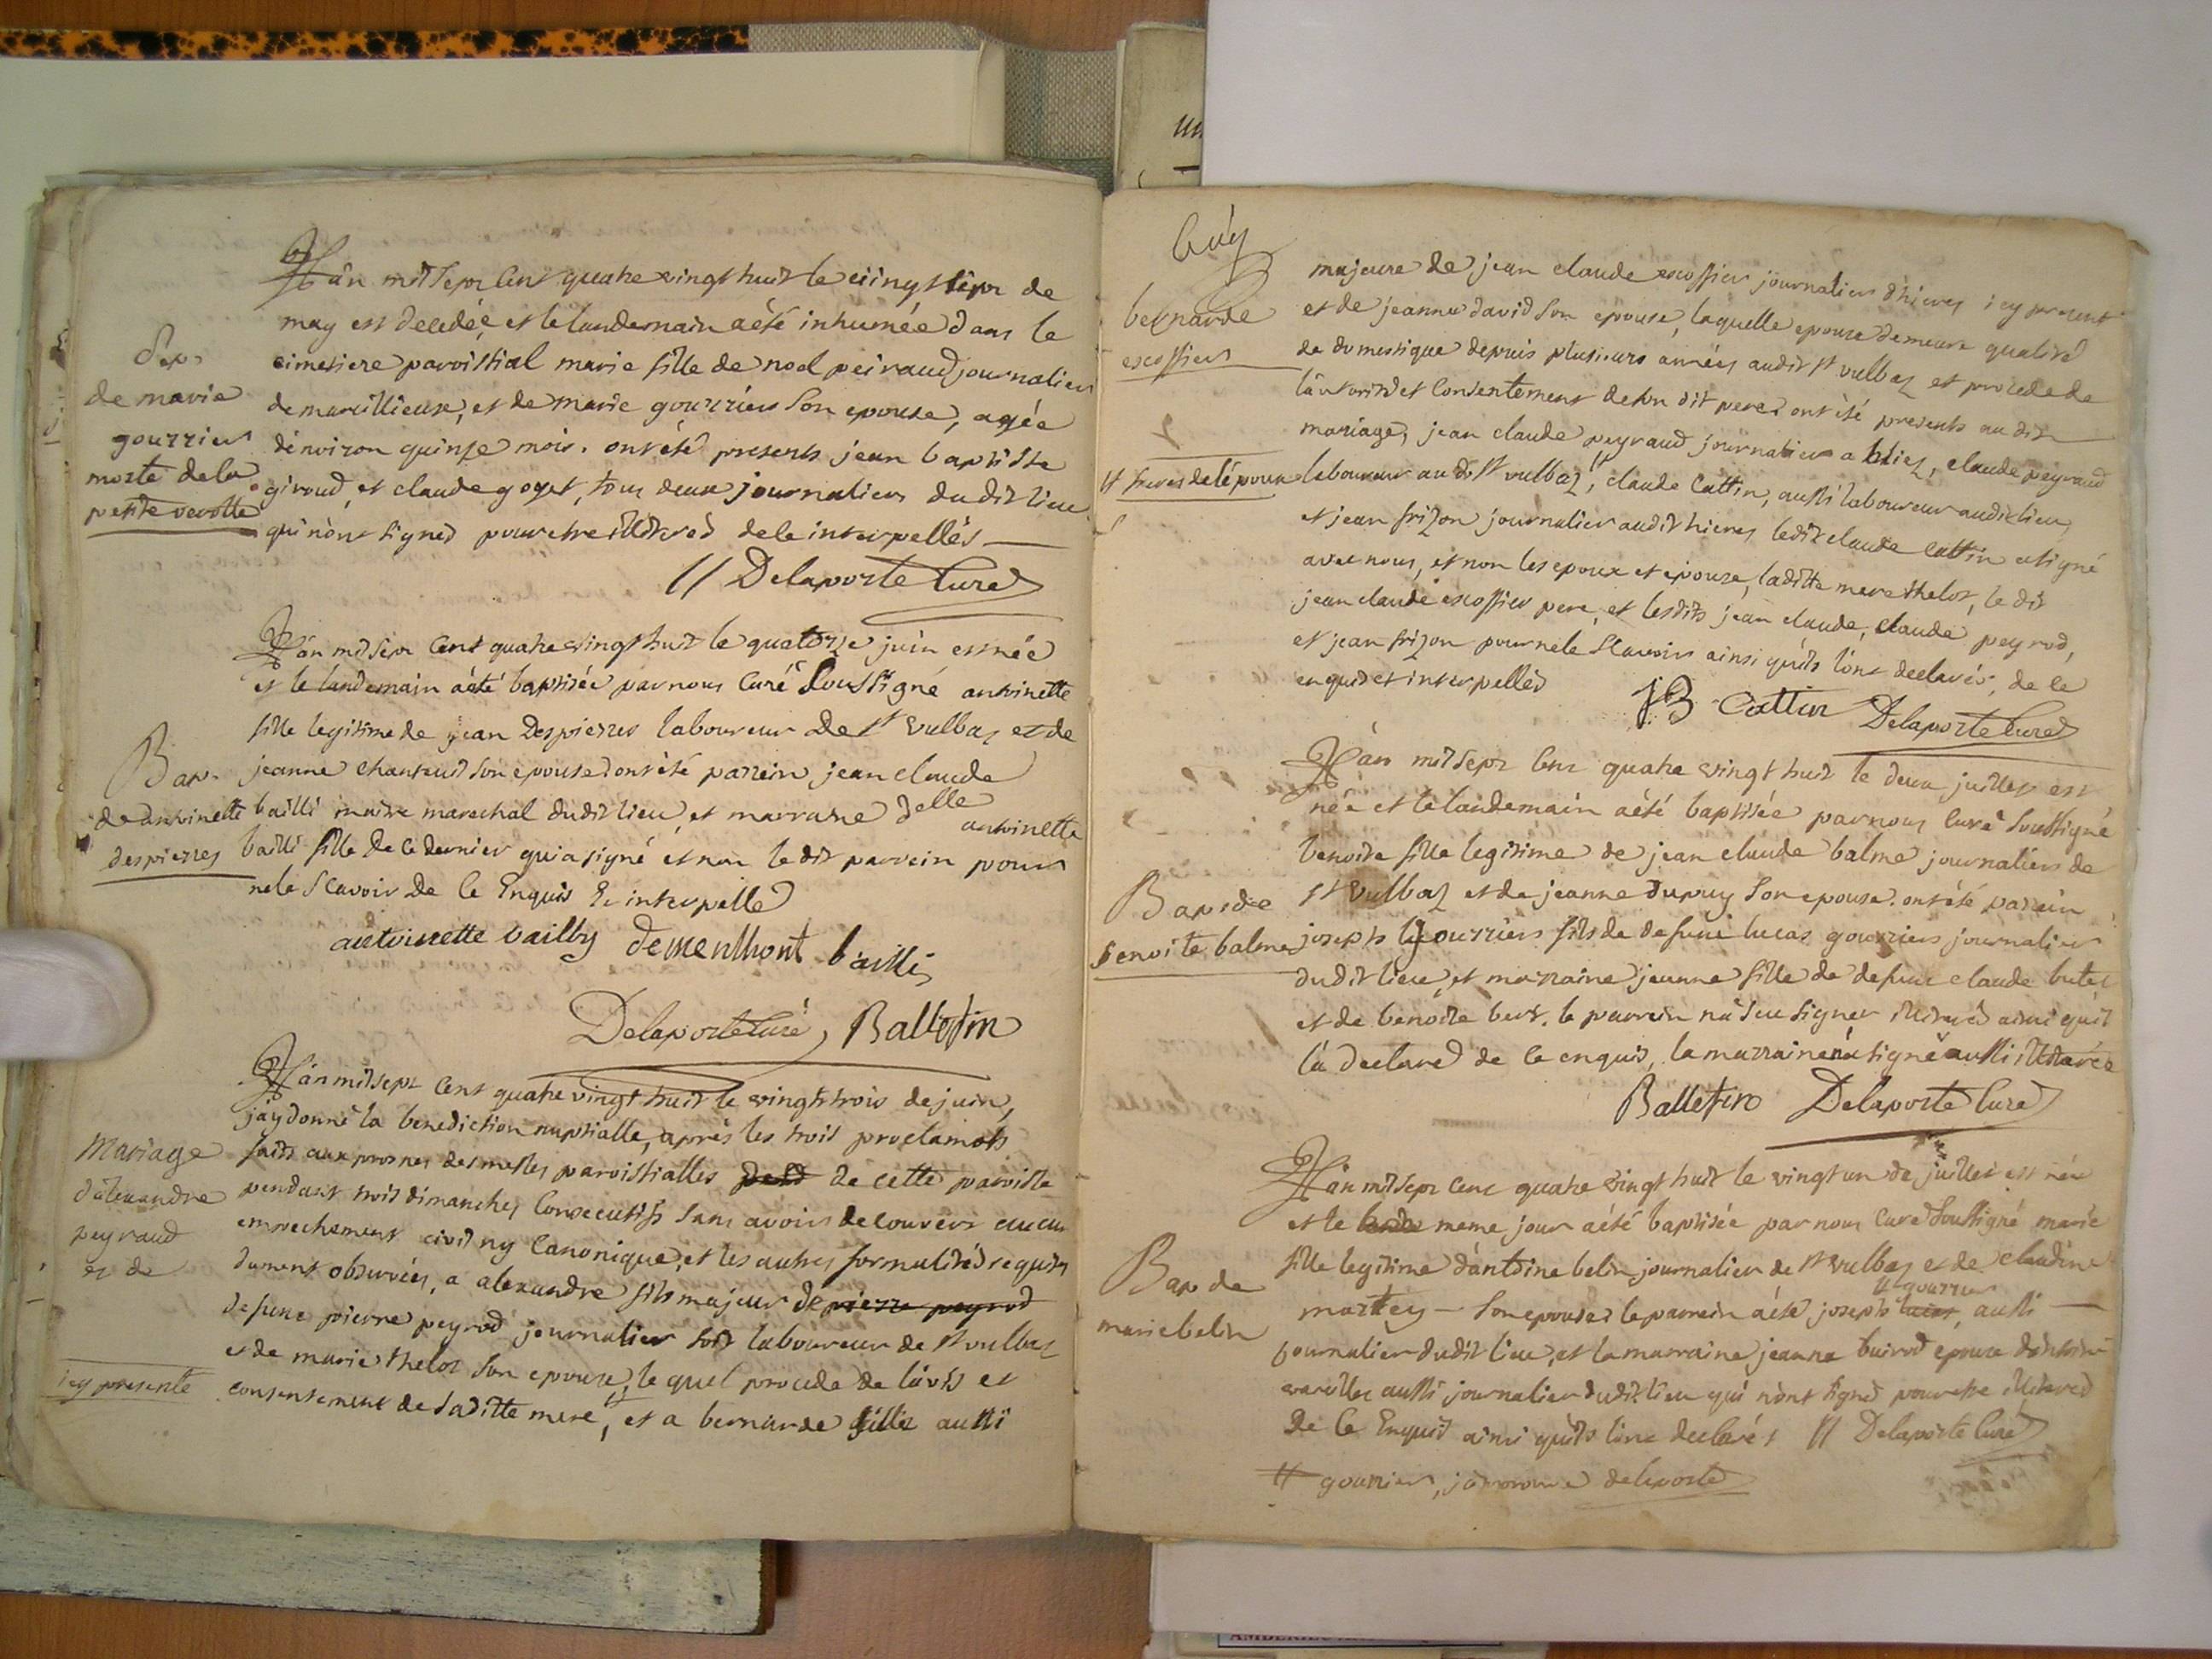 L'an mil sept cent quatre vingt huit le vingt sept de
may est decedée et le landemain a été inhumée dans le
cimetiere paroissial marie fille de noel peiraud journalier
de marcillieux, et de marie gourrier son epouse, agée
d'environ quinze mois. ont été presents jean baptiste
giroud, et claude goyet, tous deux journaliers dudit lieu
qui n'ont signés pour etre illiterés de le interpellés
// Delaporte Curé
Sep.
de marie
gourrier
morte de la
petite verolle
L'an mil sept cent quatre vingt huit le quatorze juin est née
et le landemain a été baptisée par nous Curé soussigné antoinette
fille legitime de jean Despierres laboureur de st vulbas et de
jeanne chanteud son epouse ont été parrein jean claude
bailli maitre marechal dudit lieu, et marraine delle antoinette
bailli fille de ce dernier qui a signé et non le dit parrein pour
ne le scavoir de ce Enquis Et interpellé
Bap.
de antoinette
despierres
antoinette bailly dementhont bailli
Delaporte Curé, Balletin
L'an mil sept cent quatre vingt huit le vingt trois de juin,
j'ay donné la benediction nuptialle, après les trois proclamats
faits aux prones des messes paroissialles de cette paroisse
pendant trois dimanches consecutifs sans avoir decouvert aucun
empechement civil ny canonique, et les autres formalités requises
dument observées, a alexandre fils majeur de pierre peyrod
defunt pierre peyrod journalier soit laboureur de st vulbas
et de marie thelot son epouse, le quel procede de l'avis et
consentement de sa ditte mere, et a bernarde fille aussi
Mariage
d'alexandre
peyraud
et de
icy presente
bernarde
escossier
majeure de jean claude escossier journalier d'hieres icy present
et de jeanne david son epouse, laquelle epouse demeure qualité
de domestique depuis plusieurs années audit st vulbas et procede de
l'autorité et consentement de son dit pere ont été presents au dit
mariage, jean claude peyraud journalier a blies, claude peyraud
laboureur audt st vulbas, claude Cattin, aussi laboureur audit lieu,
et jean frizon journalier audit hieres ledit claude Cattin a signé
avec nous, et non les epoux et epouse, laditte mere thelot, le dit
jean claude escossier pere, et lesdits jean claude, claude peyrod,
et jean frizon pour ne le scavoir ainsi qu'ils l'ont declarés, de ce
enquis et interpellés
// freres de l'epoux
JB Cattin Delaporte Curé
L'an mil sept cent quatre vingt huit le deux juillet est
née et le landemain a été baptisée par nous curé soussigné
benoite fille legitime de jean claude balme journalier de
st vulbas et de jeanne dupuy son epouse. ont été parrein
joseph gourrier fils de defunt lucas gourrier journalier
dudit lieu, et marraine jeanne fille de defunt claude butet
et de benoite bert. le parrein n'a seu signer illiteré ainsi qu'il
l'a declaré de ce enquis, la marraine n'a signé aussi illiterée
Bap. de
benoite balme
Balletin Delaporte Curé
L'an mil sept cent quatre vingt huit le vingt un de juillet est née
et le lande meme jour a été baptisée par nous Curé soussigné marie
fille legitime d'antoine belin journalier de st vulbas et de claudine
martey — son epouse le parrein a été joseph lucas // gourrier, aussi
journalier dudit lieu, et la marraine jeanne buirod epouse d'antoine
varillet aussi journalier dudit lieu qui n'ont signé pour etre illiterés
de ce Enquis ainsi qu'ils l'ont declarés // Delaporte Curé
Bap de
marie belin
// gourrier, j'approuve delaporte